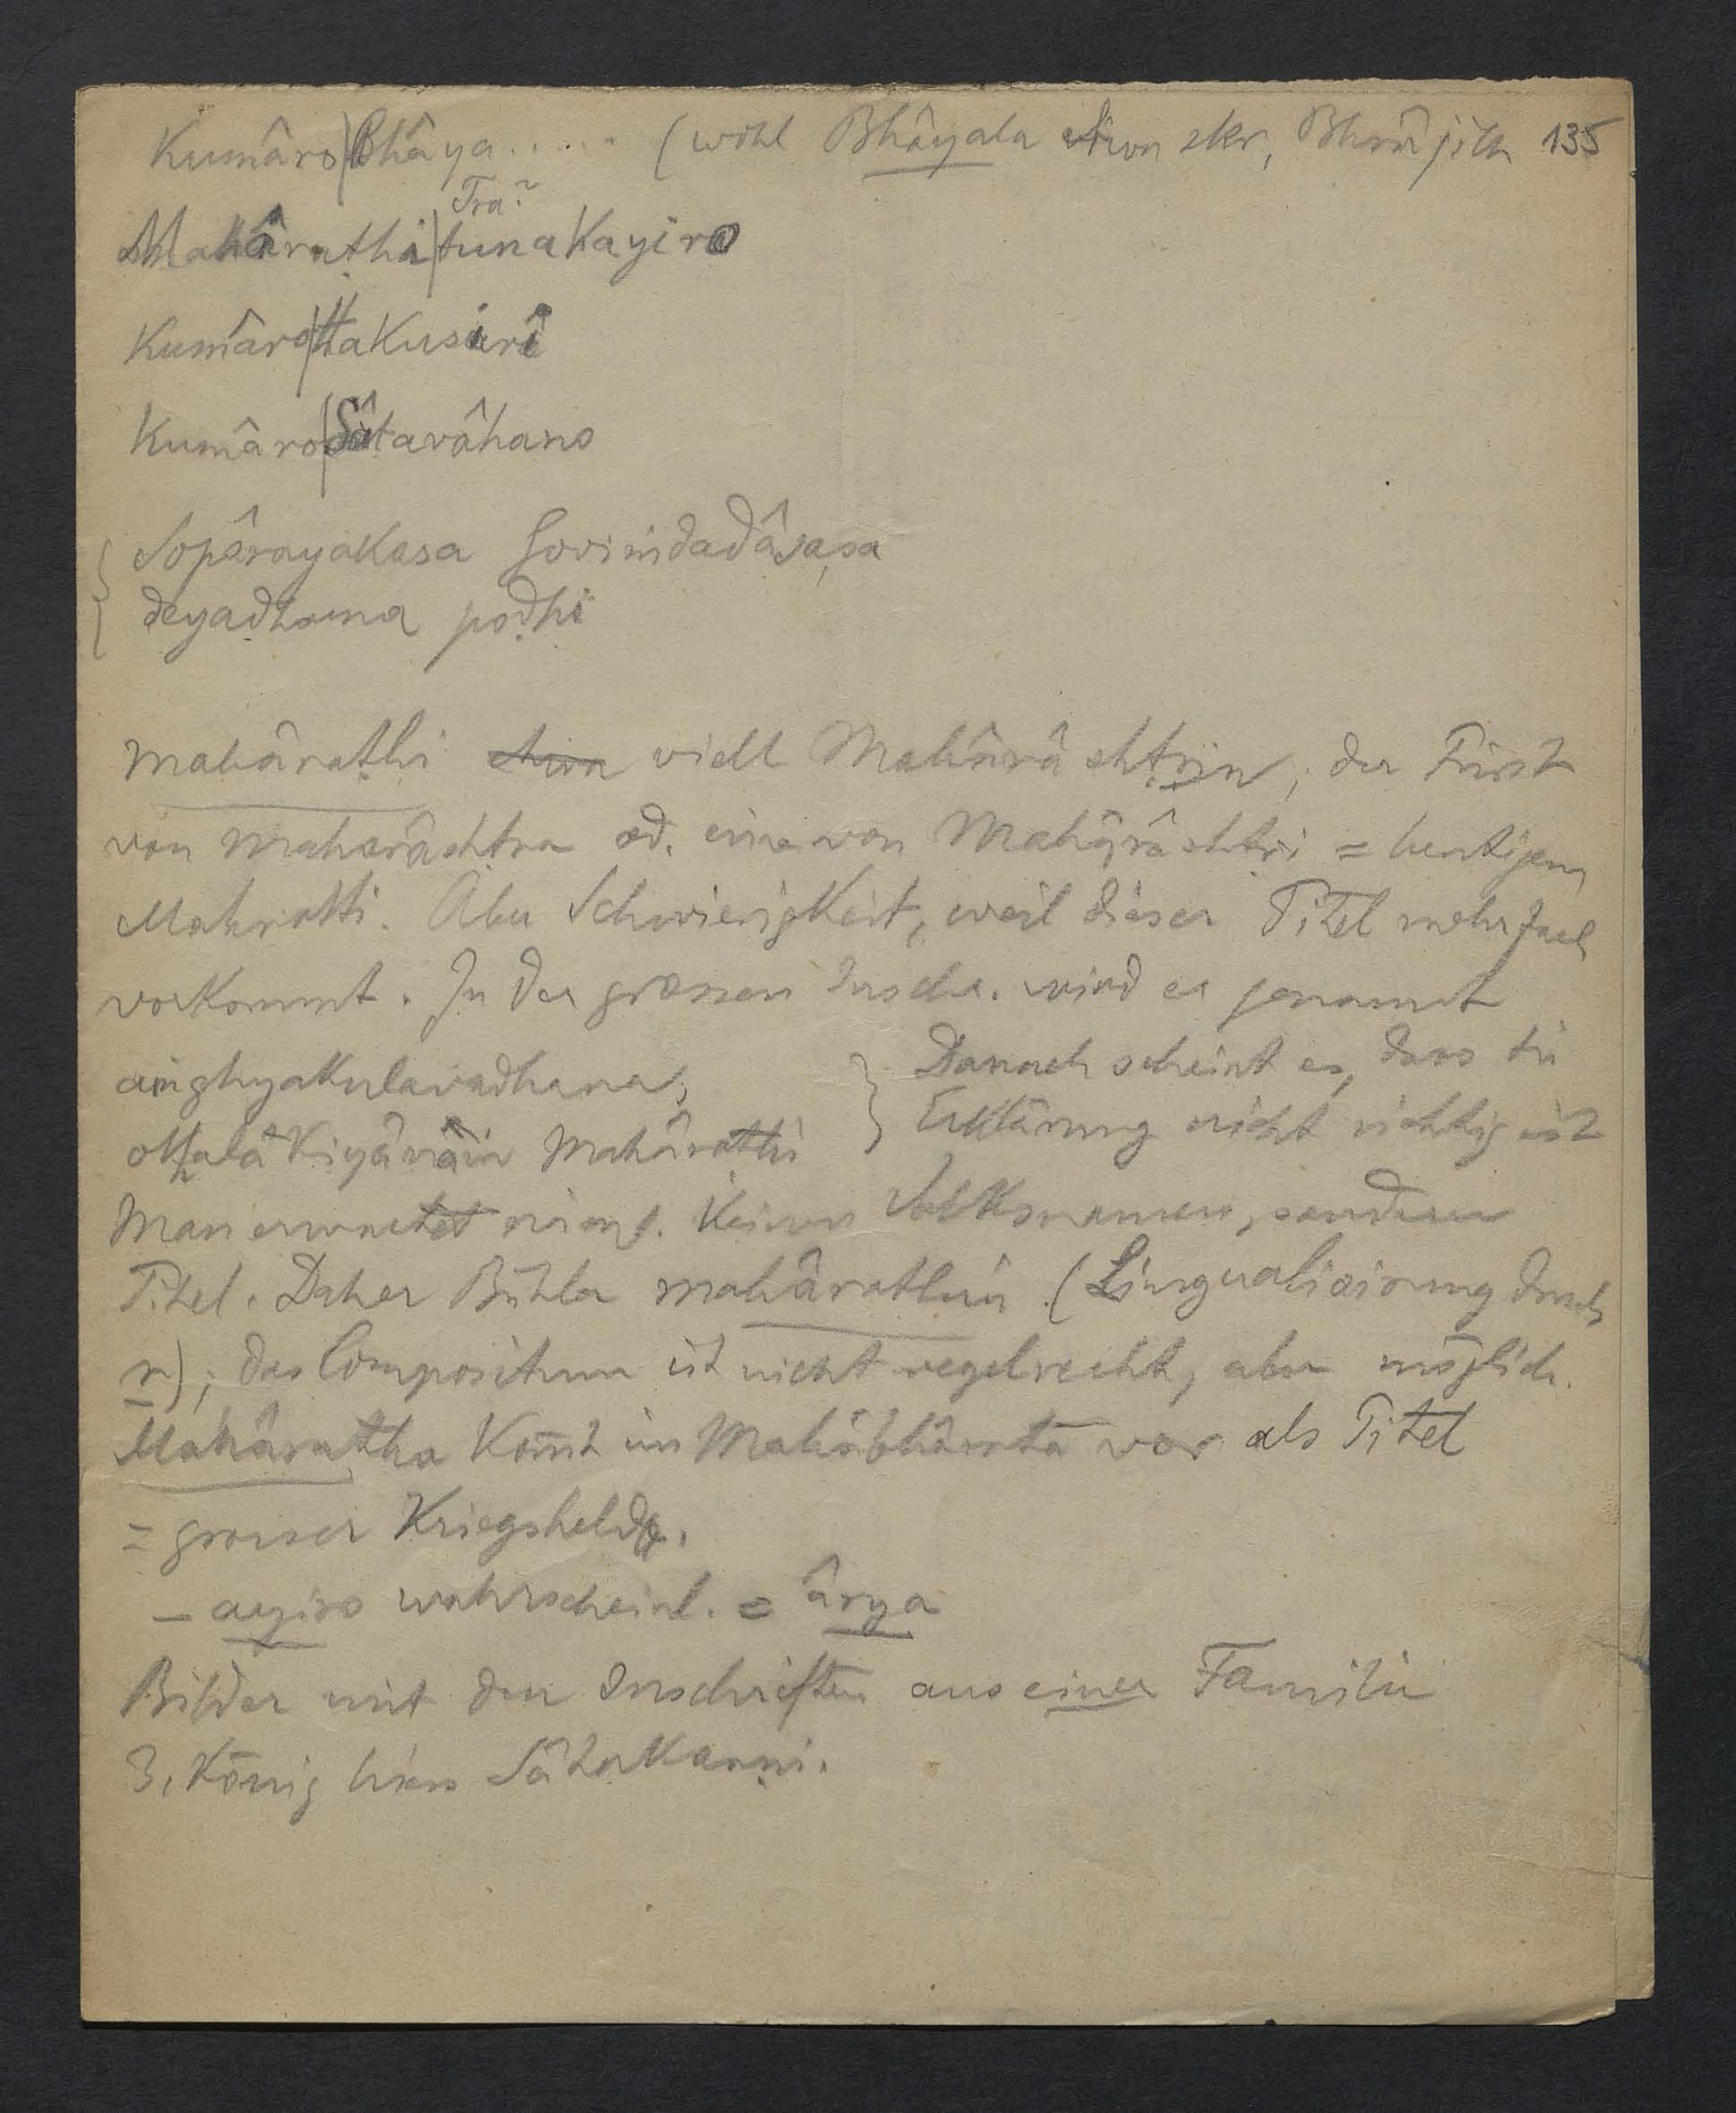 Kumâro|Bhâya..... (wohl Bhâyala von skr, Bhrâjila 135
Tra?
Mahâraṭhi|tunakayiro
Kumâro|Hakusiri
Kumâro|Sâtavâhano
Sopârayakasa Govimdadâsasa
deyadhama poḍhi
Mahâraṭhi etwa viell Mahârâshṭrin, der Fürst
von Maharâshtra od. einer von Mahârâshṭri = heutigem
Mahratti. Aber Schwierigkeit, weil dieser Titel mehrfach
vorkommt. In der grossen Inschr. wird er genannt
amghyakulavadhana, } Danach scheint es, dass die
Erklärung nicht richtig ist
Mahâraṭhi
Man erwartet keinen Volksnamen, sondern
Titel. Daher Bühler mahârathin (Lingualisirung durch
r); das Compositum ist nicht regelrecht, aber möglich.
Mahâratha kom̄t im Mahâbhârata vor als Titel
= grosser Kriegsheld.
– ayiro wahrscheinl. = ârya
Bilder mit den Inschriften aus einer Familie
3. König hiess Sâtakaṇṇi.